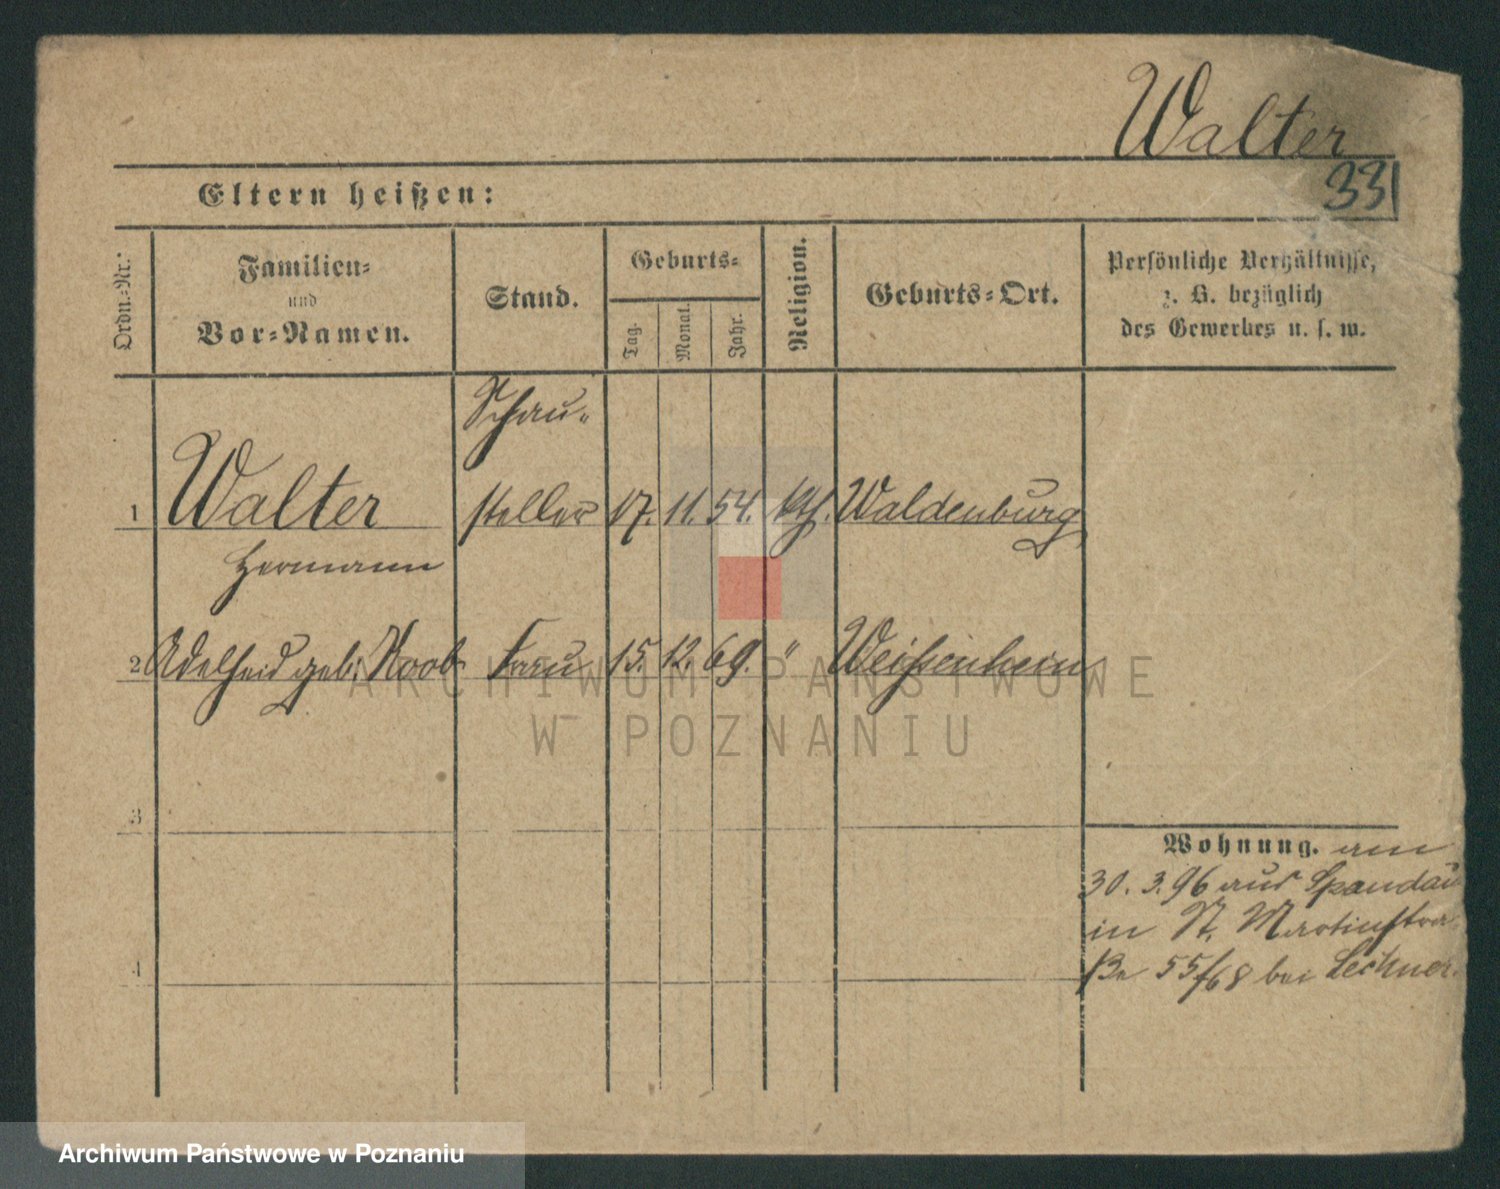 Walter
33
Eltern heißen:
Ordn.-Nr.:
Familien-
und
Vor-Namen.
Stand.
Geburts-
Tag.
Monat.
Jahr.
Religion.
Geburts-Ort.
Persönliche Verhältnisse,
z. B. bezüglich
des Gewerbes u. s. w.
Schau-
1 Walter steller 17. 11. 54. kth. Waldenburg
Hermann
2 Adelheid geb. Koob Frau 15. 12. 69. " Weißenheim
ARCHIWUM PAŃSTWOWE
W POZNANIU
3
Wohnung. am
30. 3. 96 aus Spandau
in St. Martinstra
ße 55/68 bei Lechner.
4
Archiwum Państwowe w Poznaniu